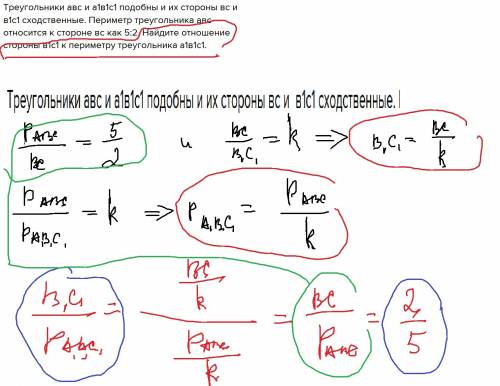 Треугольники авс и а1в1с1 подобны и их стороны вс и
в1с1 сходственные. Периметр треугольника авс
относится к стороне вс как 5:2. Найдите отношение
стороны в1с1 к периметру треугольника а1в1с1.
Треугольники авс и а1в1с1 подобны и их стороны вс и в1с1 сходственные.
P_ABC / BC = 5 / 2 и BC / B₁C₁ = k ⇒ B₁C₁ = BC / k
P_ABC / P_A₁B₁C₁ = k ⇒ P_A₁B₁C₁ = P_ABC / k
B₁C₁ / P_A₁B₁C₁ = (BC / k) / (P_ABC / k) = BC / P_ABC = 2 / 5